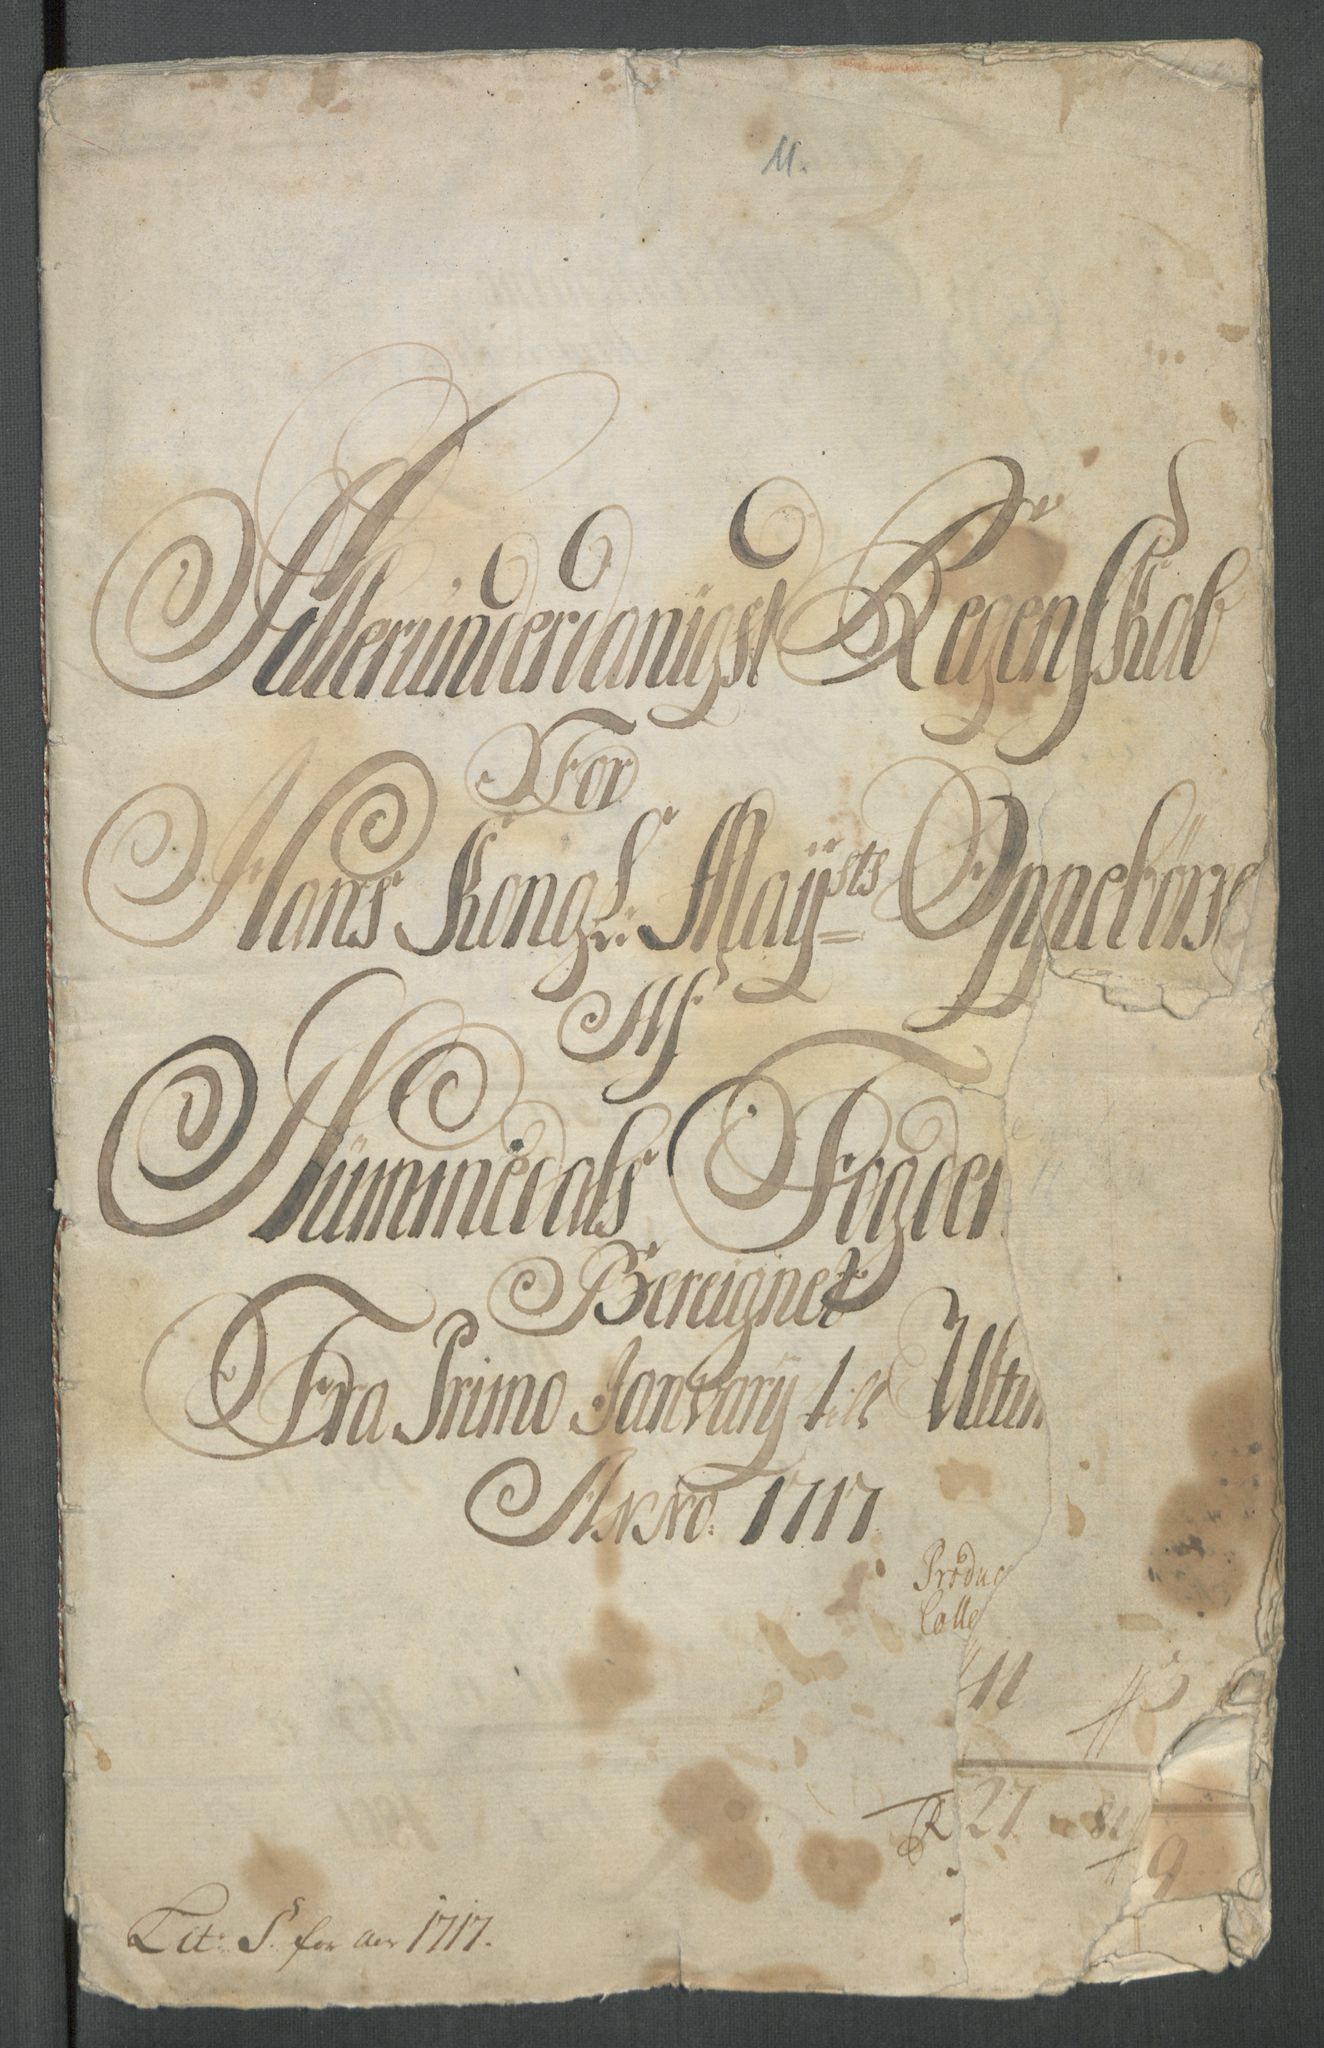 11.
Alleründerdanigst Regenskab
For
Hans Kongl: Maÿsts Oppebörse
Af
Nümmedals Fogder
Bereignet
Fra Primo Januarÿ till Ultim
Anno. 1717
Produc
Colle
11 5
R 27 81
9
Lit: S. for aar 1717.